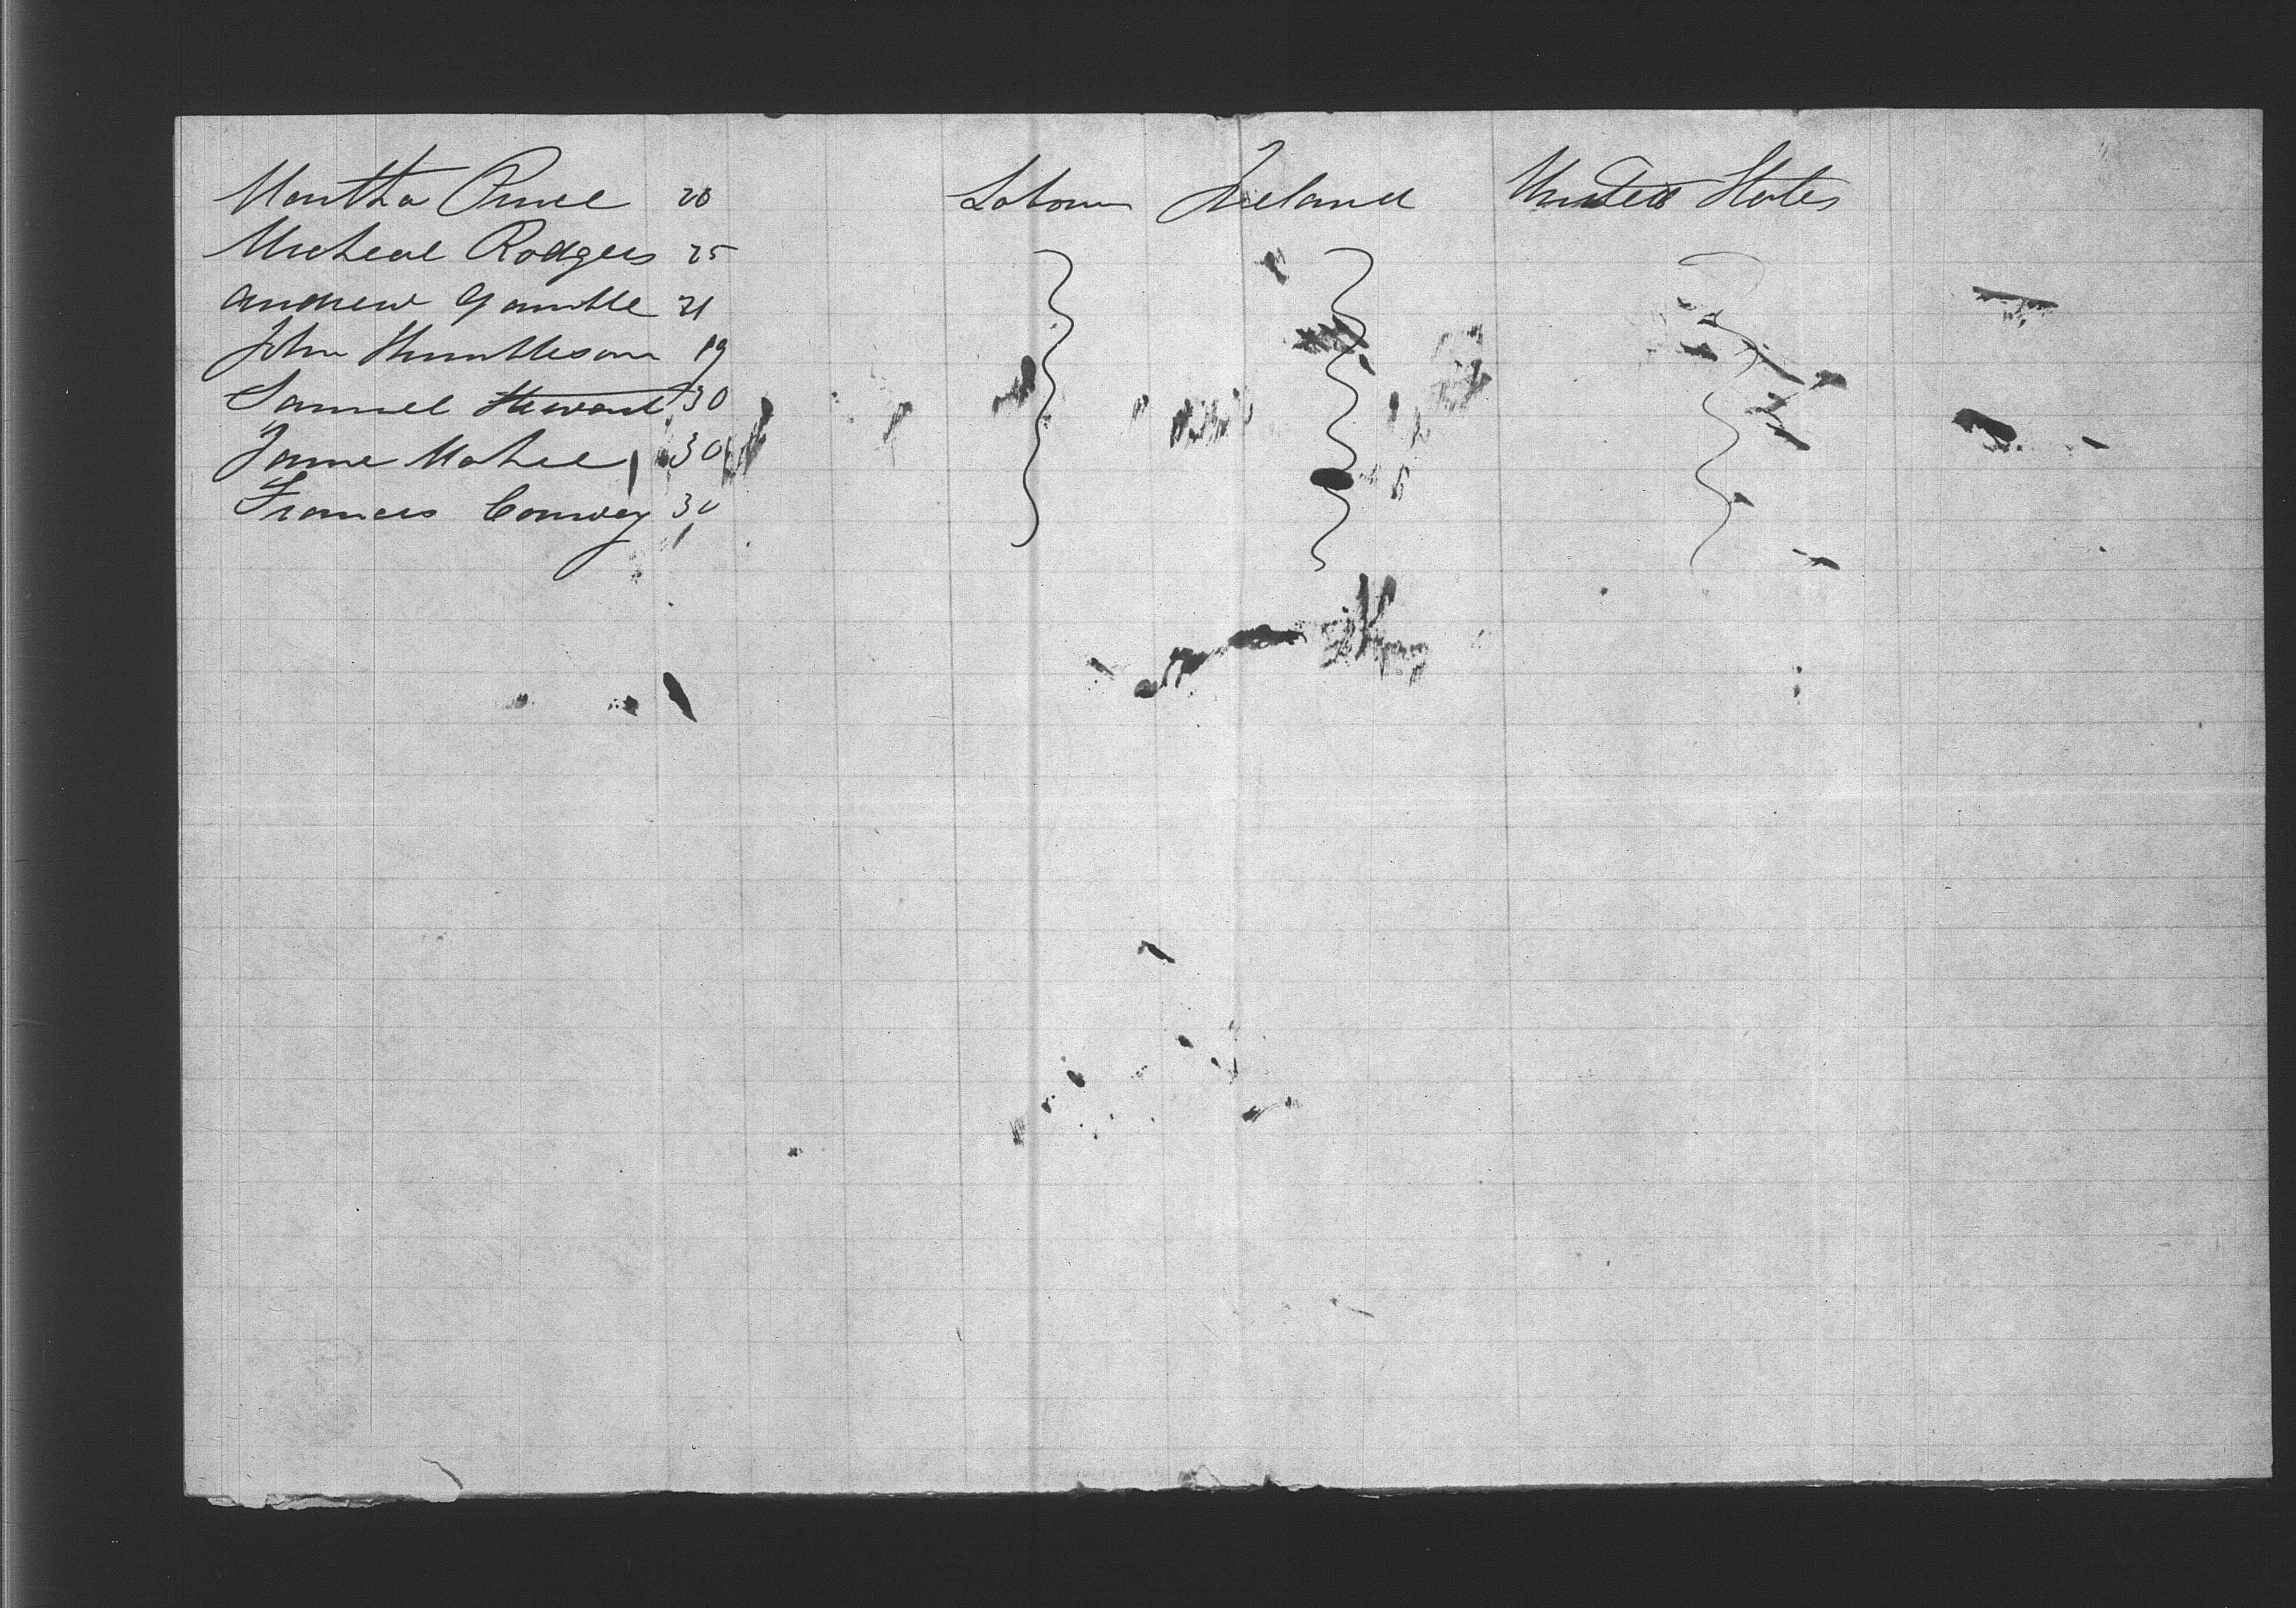 Martha 20 Labour Ireland United States
Micheal Rodgers 25
Andrew Gamble 21
John 19
Samuel Stewart 30
Jame 30
Frances Conway 30